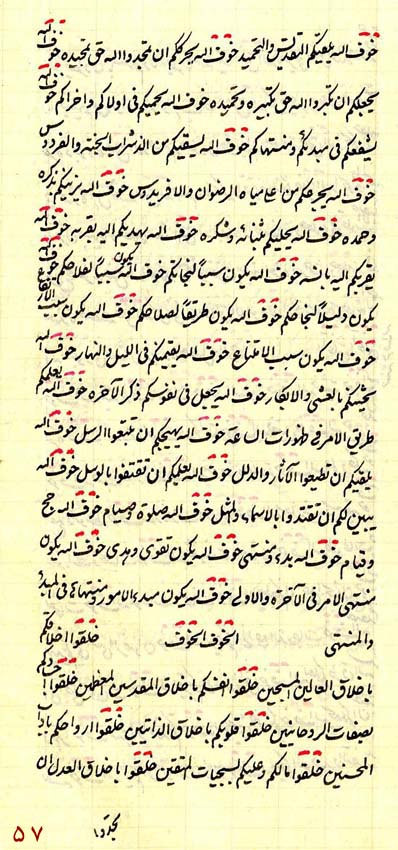 خوف الله يلقيكم التقديس والتحميد خوف الله يحرككم ان تمجدوا الله حق تمجيده خوف الله
يجعلكم ان تكبروا الله حق تكبيره وتحميده خوف الله يحييكم فى اولاكم واخراكم خوف الله
يشفعكم فى مبدئكم ومنتهاكم خوف الله يسقيكم من الذ شراب الجنة والفردوس
خوف الله يجرعكم من اعلى مياه الرضوان والافريدوس خوف الله يزينكم بذكره
وحمده خوف الله يحليكم بثنائه وشكره خوف الله يهديكم اليه بقربه خوف الله
يقربكم اليه بانسه خوف الله يكون سبباً لنجاتكم خوف الله يكون سبباً لفلاحكم خوف الله
يكون دليلاً لنجاحكم خوف الله يكون طريقاً لصلاحكم خوف الله يكون سبب الارتفاع
خوف الله يكون سبب الامتناع خوف الله يقيمكم فى الليل والنهار خوف الله
بالعشى والابكار خوف الله يجعل فى نفوسكم ذكر الآخرة خوف الله يعلمكم
طريق الامر فى ظهورات الساعة خوف الله يهيجكم ان تتبعوا الرسل خوف الله
يلقيكم ان تطيعوا الآثار والدلل خوف الله يعلمكم ان تقتفوا بالوسل خوف الله
يبين لكم ان تقتدوا بالاسماء والمثل خوف الله صلوة وصيام خوف الله حج
وقيام خوف الله بدء ومنتهى خوف الله يكون تقوى وهدى خوف الله يكون
منتهى الامر فى الآخرة والاولى خوف الله يكون مبدء الامور ومنتهاء فى المبدء
والمنتهى الخوف الخوف خلقوا اخلاقكم
باخلاق العالين المسبحين خلقوا انفسكم باخلاق المقدسين المعظمين خلقوا اجسادكم
بصفات الروحانيين خلقوا قلوبكم باخلاق الذاتيين خلقوا ارواحكم بآداب
المحسنين خلقوا مالكم وعليكم بسجيات المتقين خلقوا باخلاق العدل ان
تجدوا
۵۷